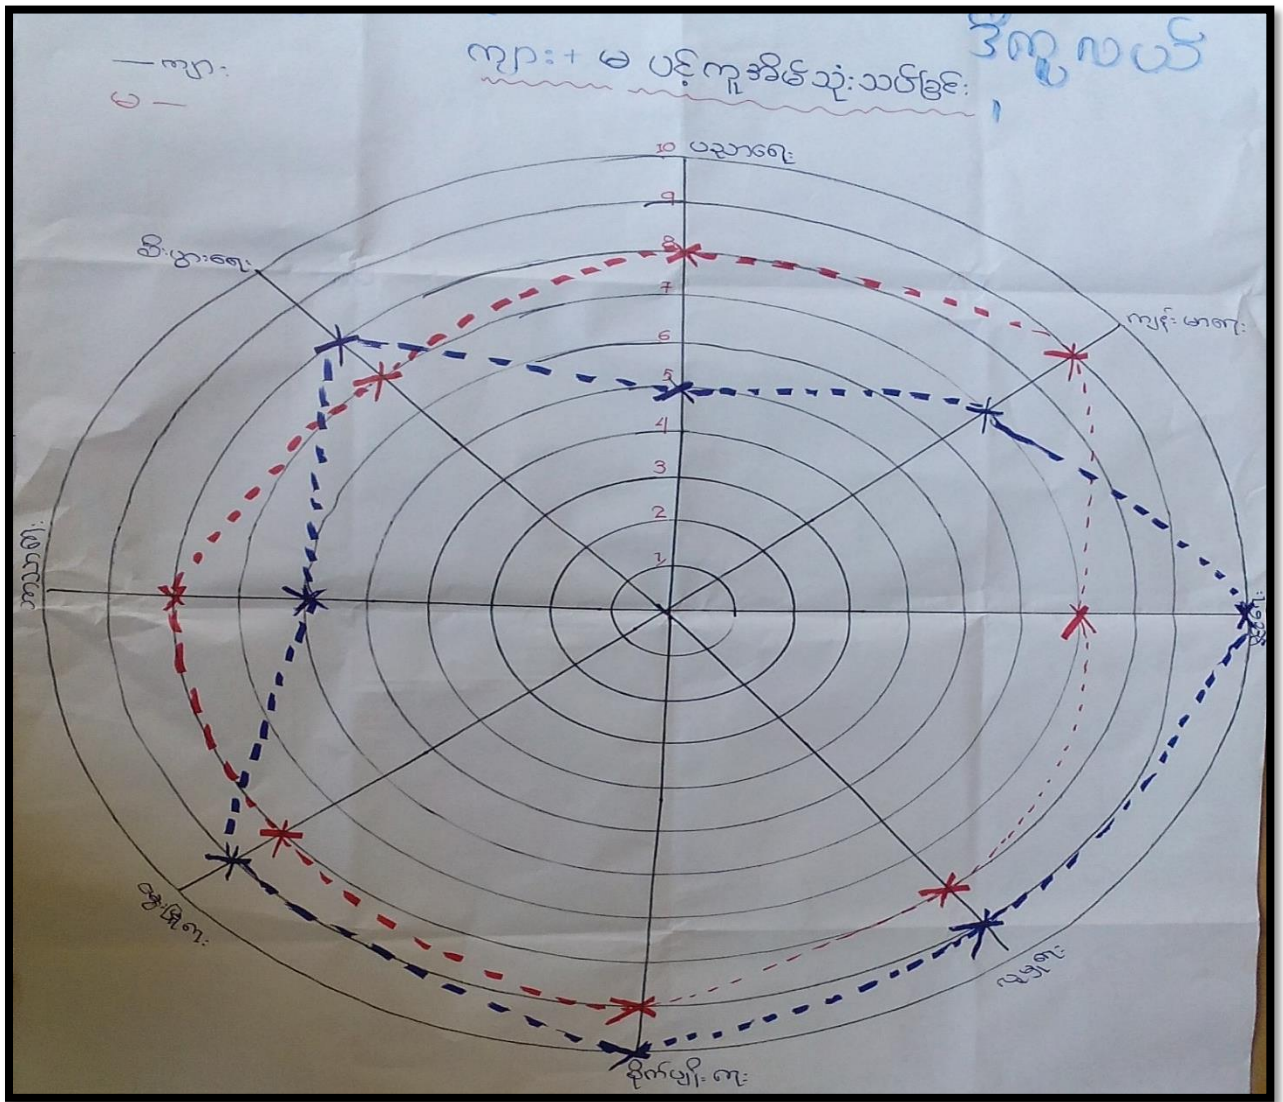 ဒီကူလယ်
ကျား + မ ပင့်ကူအိမ်သုံးသပ်ခြင်း
— ကျား
မ —
10 ပညာရေး
9
8
7
6
5
4
3
2
1
စီးပွားရေး
ကျန်းမာရေး
လူမှုရေး
စိုက်ပျိုးရေး